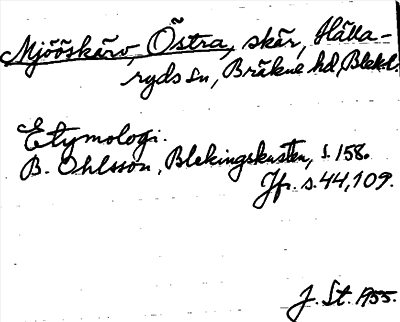 Mjööskärv, Östra, skär, Hälla-
ryds sn, Bräkne hd, Blekl.
Etymologi.
B. Ohlsson, Blekingskusten, s. 158.
Jfr. s. 44, 109.
J. St. 1955.